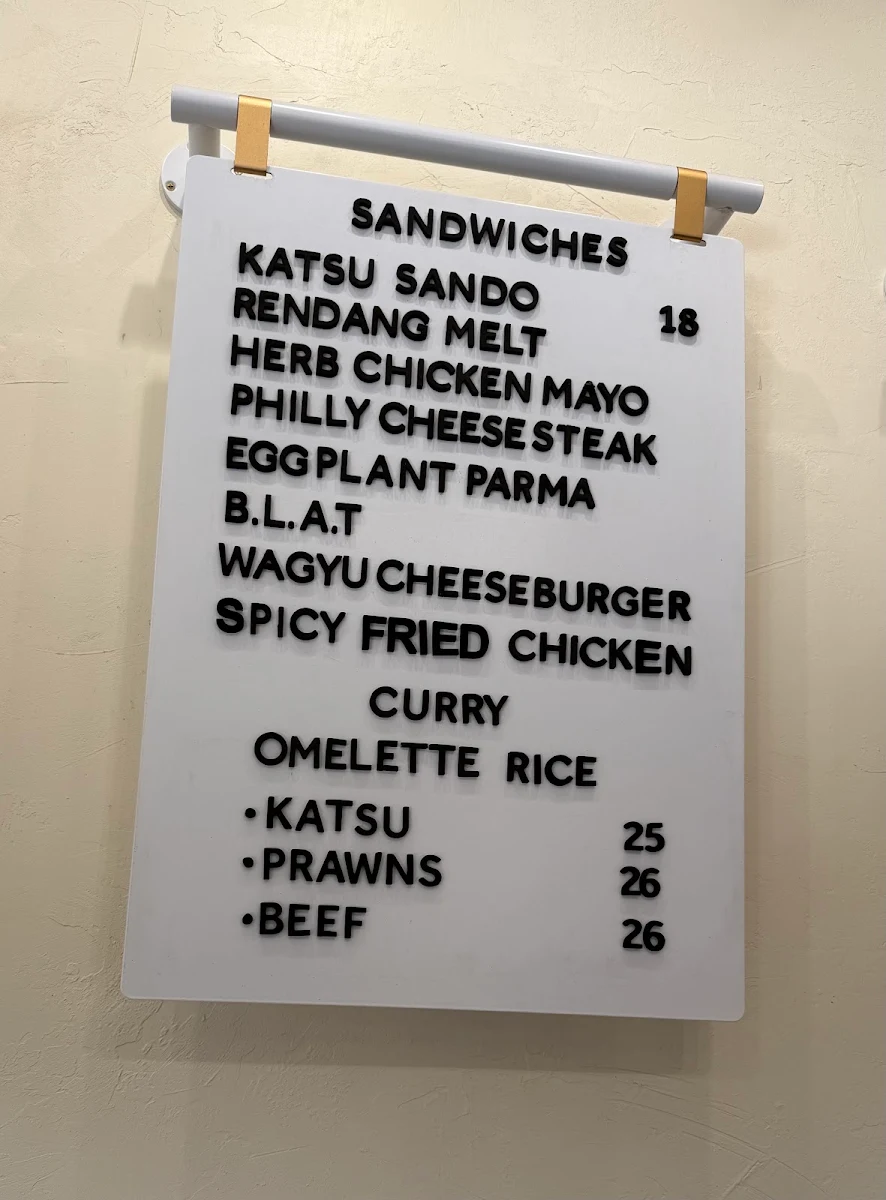 SANDWICHES
KATSU SANDO 18
RENDANG MELT
HERB CHICKEN MAYO
PHILLY CHEESE STEAK
EGGPLANT PARMA
B.L.A.T
WAGYU CHEESEBURGER
SPICY FRIED CHICKEN
CURRY
OMELETTE RICE
•KATSU 25
•PRAWNS 26
•BEEF 26